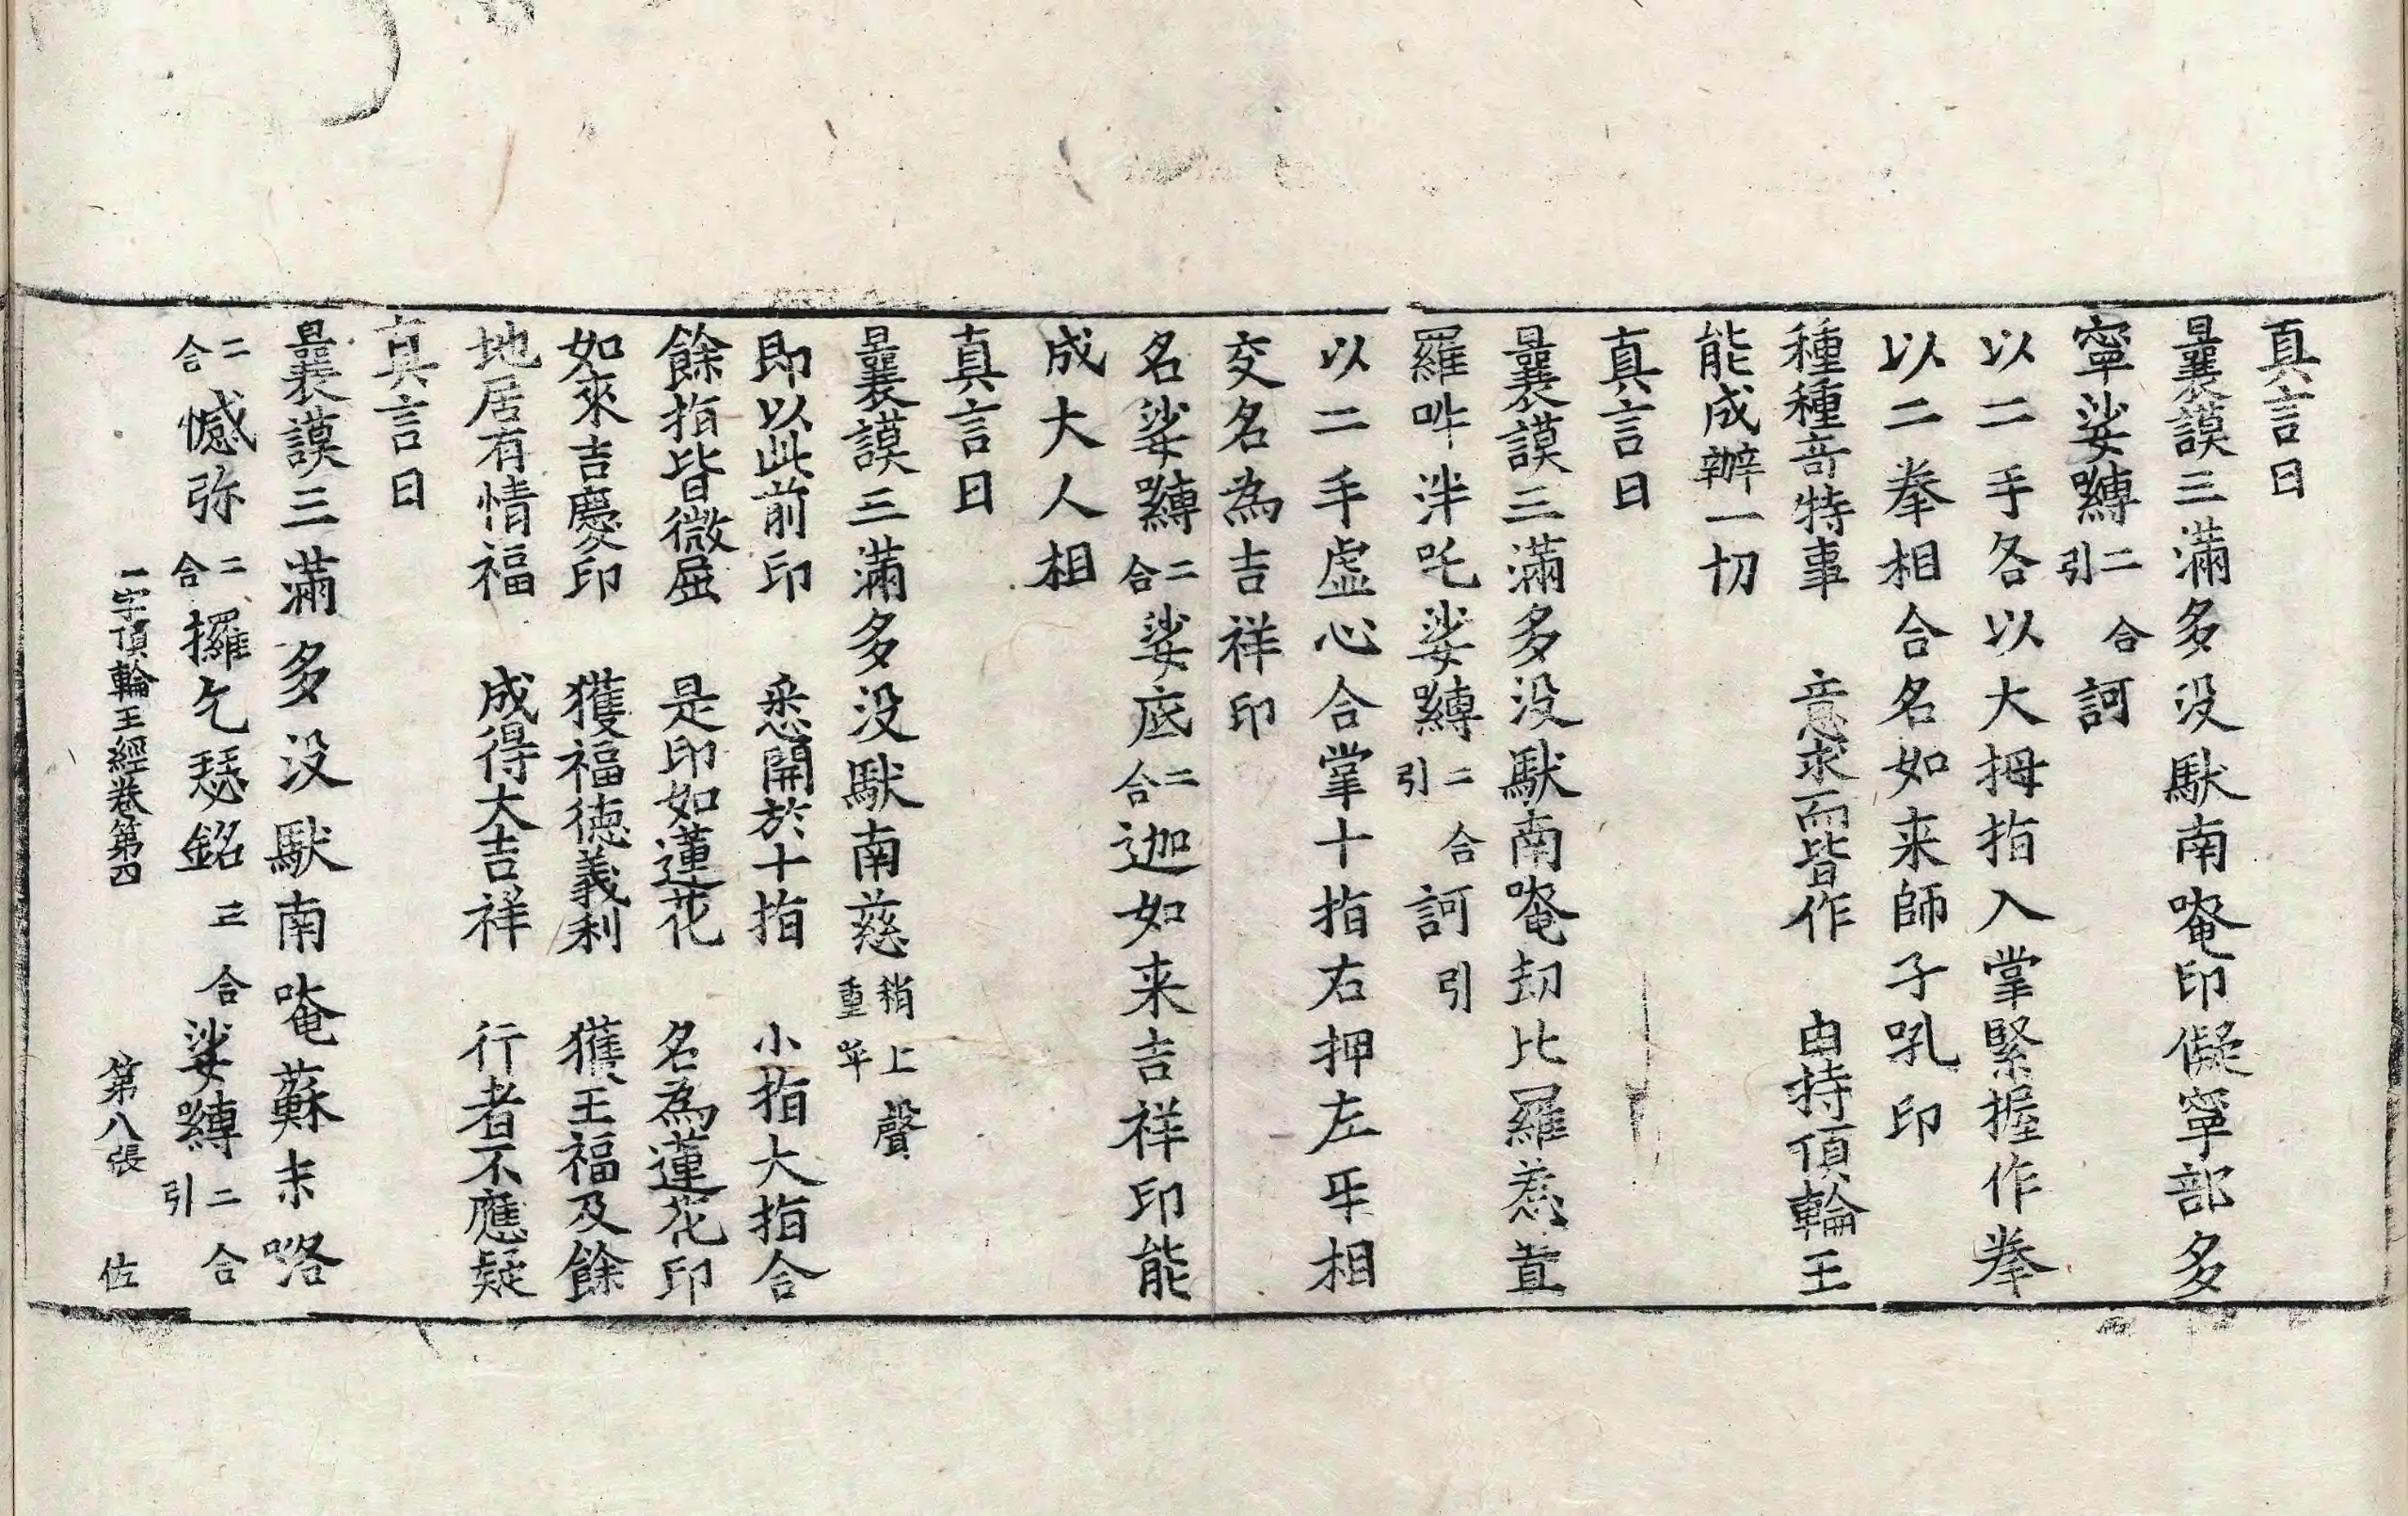 真言曰
曩謨三滿多没馱南唵印儗寧部多
寧娑嚩二合引訶
以二手各以大拇指入掌緊握作拳
以二拳相合名如来師子吼印
種種奇特事　意求而皆作　由持頂輪王
能成辦一切
真言曰
曩謨三滿多没馱南唵刧比羅惹
羅吽泮吒娑嚩二合引訶引
以二手虛心合掌十指右押左乎相
交名為吉祥印
名娑嚩二合娑底二合迦如来吉祥印能
成大人相
真言曰
曩謨三滿多没馱南慈稍上聲重呼
即以此前印　悉開於十指　小指大指合
餘指皆微屈　是印如蓮花　名為蓮花印
如來吉慶印　獲福德義利　獲王福及餘
地居有情福　成得大吉祥　行者不應疑
真言曰
曩謨三滿多没馱南唵蘇末咯
二合憾弥二合攞乞瑟銘三合娑嚩二合引
一字頂輪王經卷第四　第八張　佐